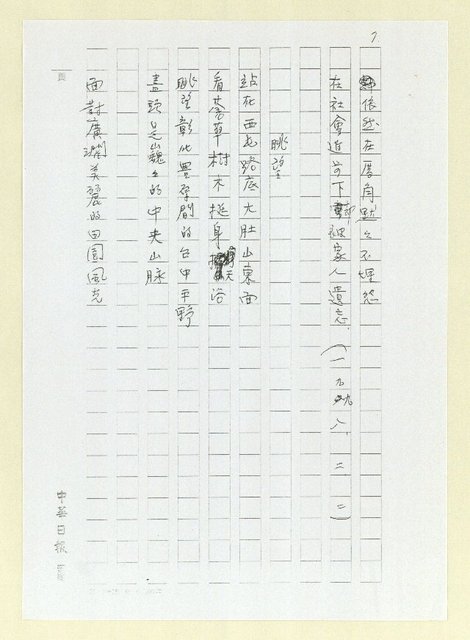 7
依然在厝角默々不埋怨
在社會近前下被家人遺忘 (一九九八、二、二)
眺望
站在西屯路底大肚山東面
看芬草樹木挺身天浴
眺望彰化豐原間的台中平野
盡頭是巍々的中央山脉
面對廣濶美麗的田園風光
中華日報